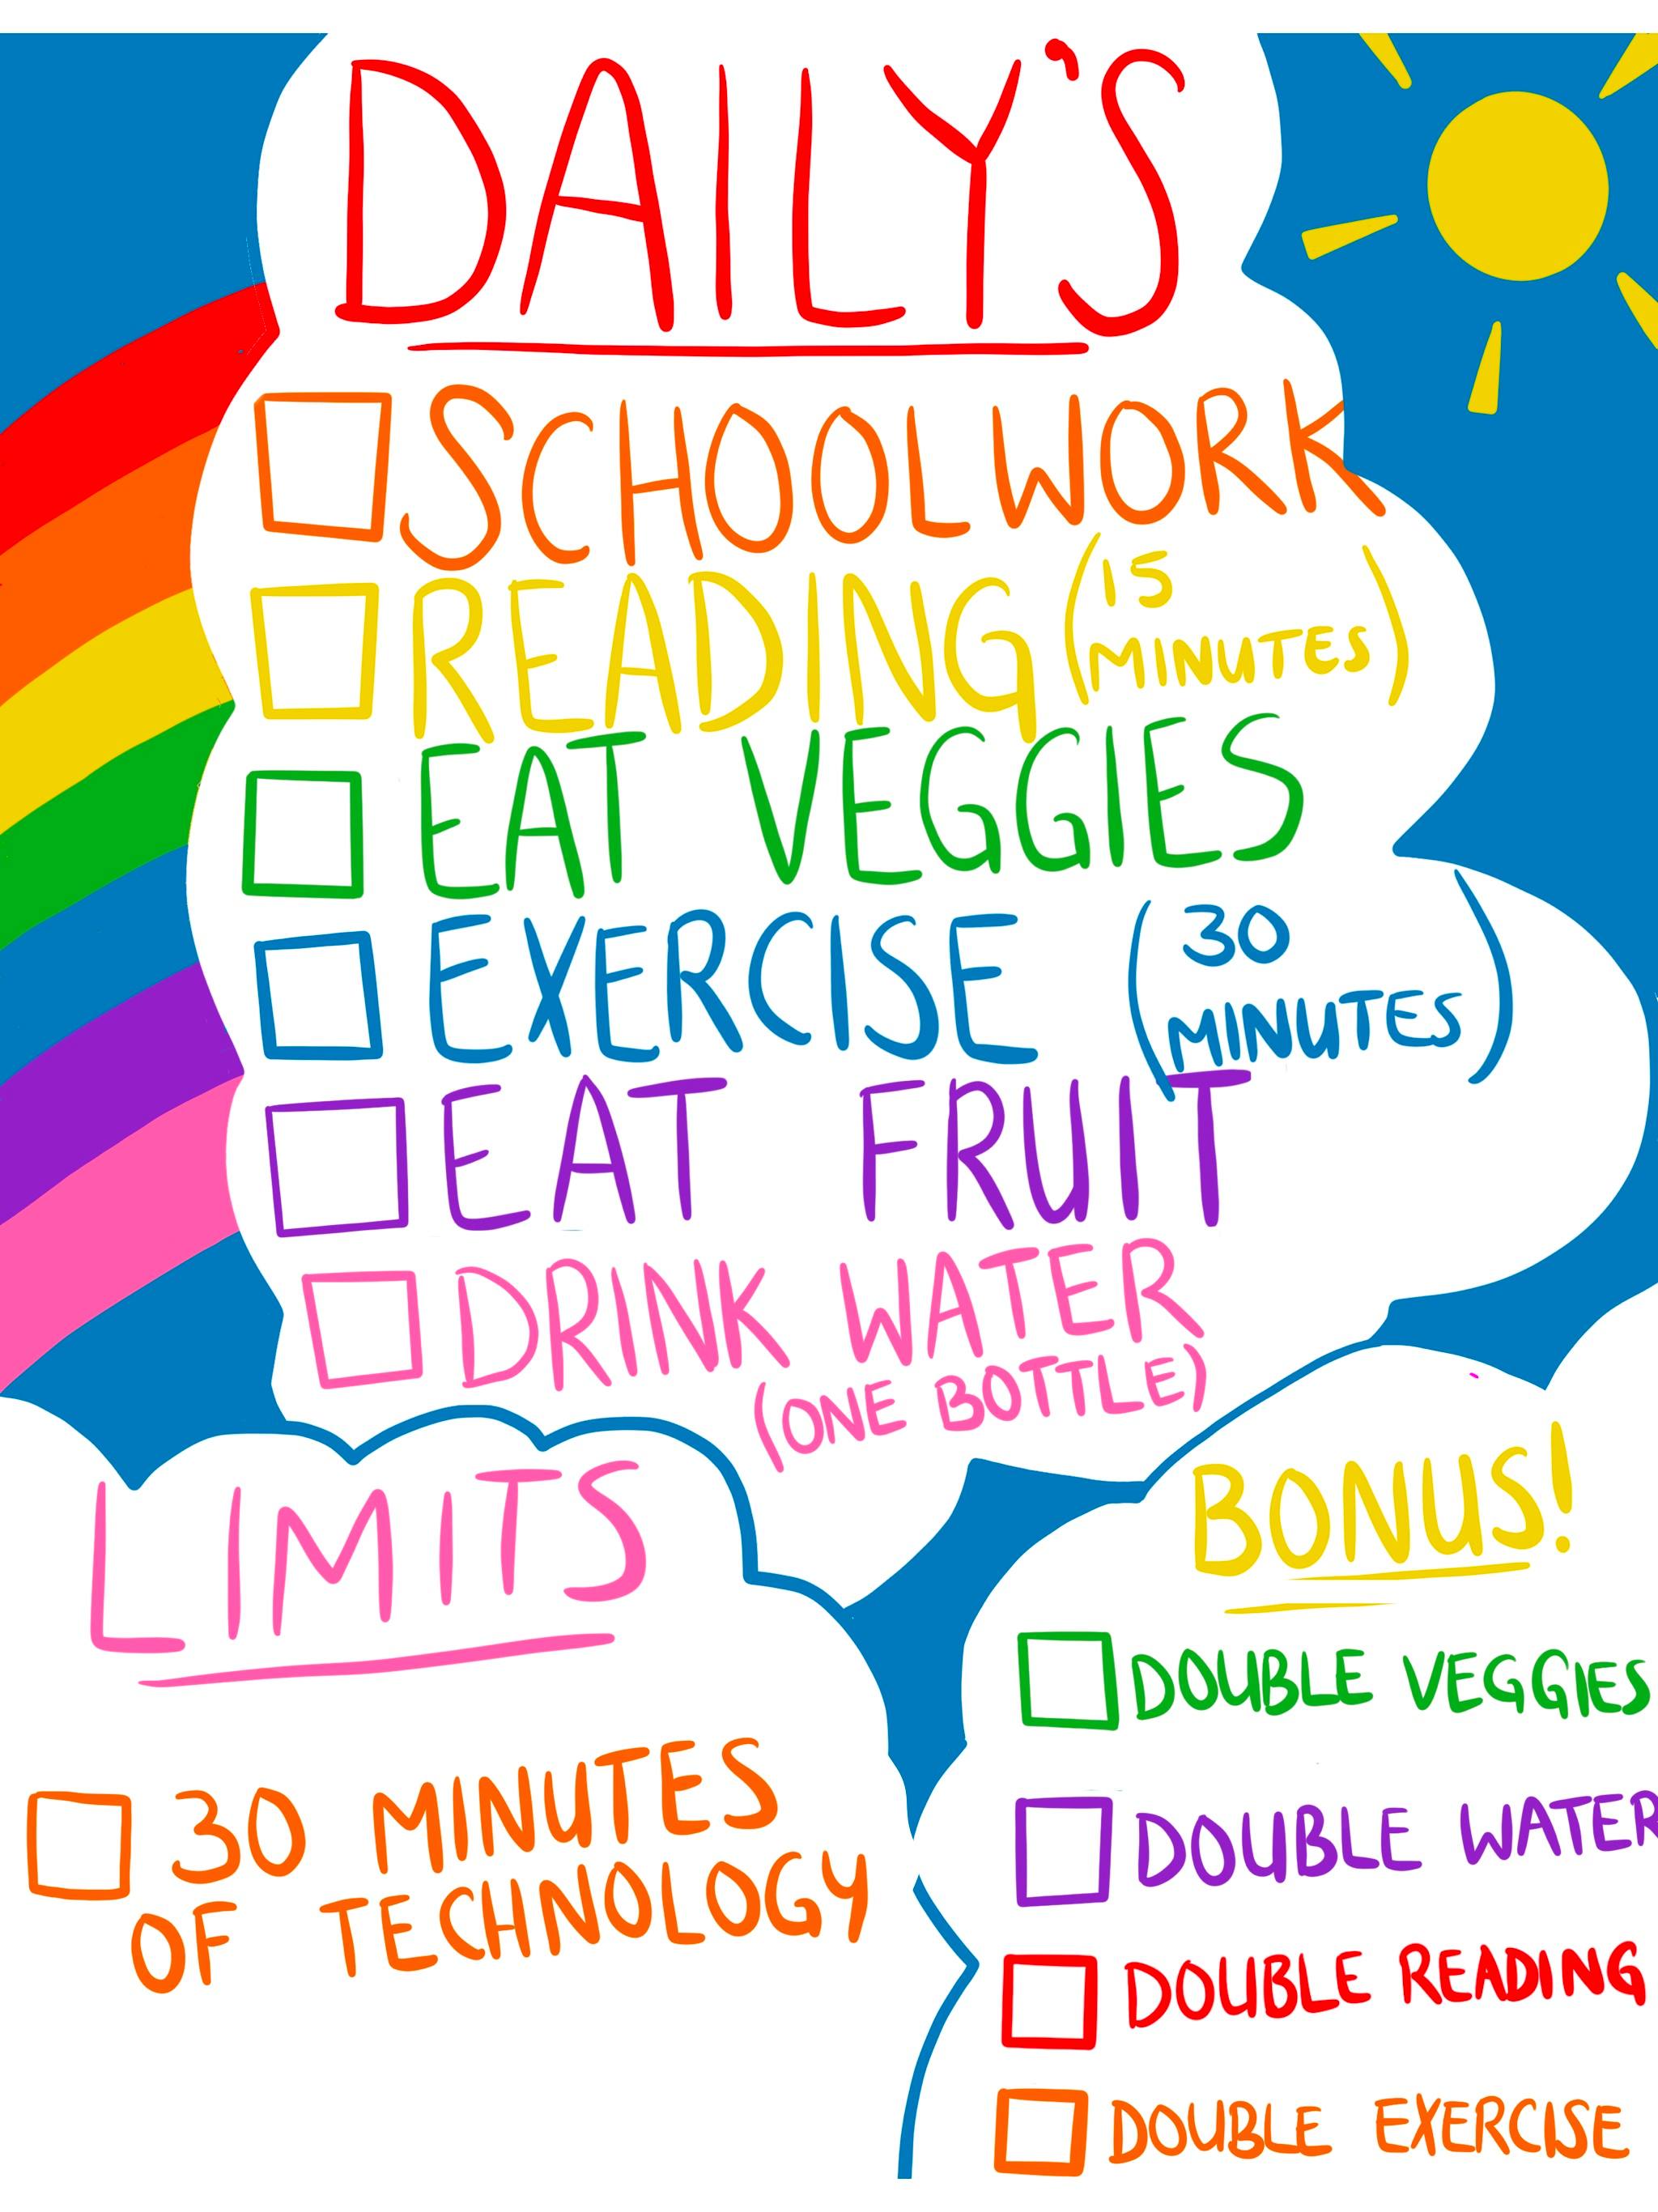 DAILY'S
SCHOOLWORK
READING (15
MINUTES)
EAT VEGGIES
EXERCISE (30
MINUTES)
EAT FRUIT
DRINK WATER
(ONE BOTTLE)
LIMITS
30 MINUTES
OF TECHNOLOGY
BONUS!
DOUBLE VEGGIES
DOUBLE WATER
DOUBLE READING
DOUBLE EXERCISE